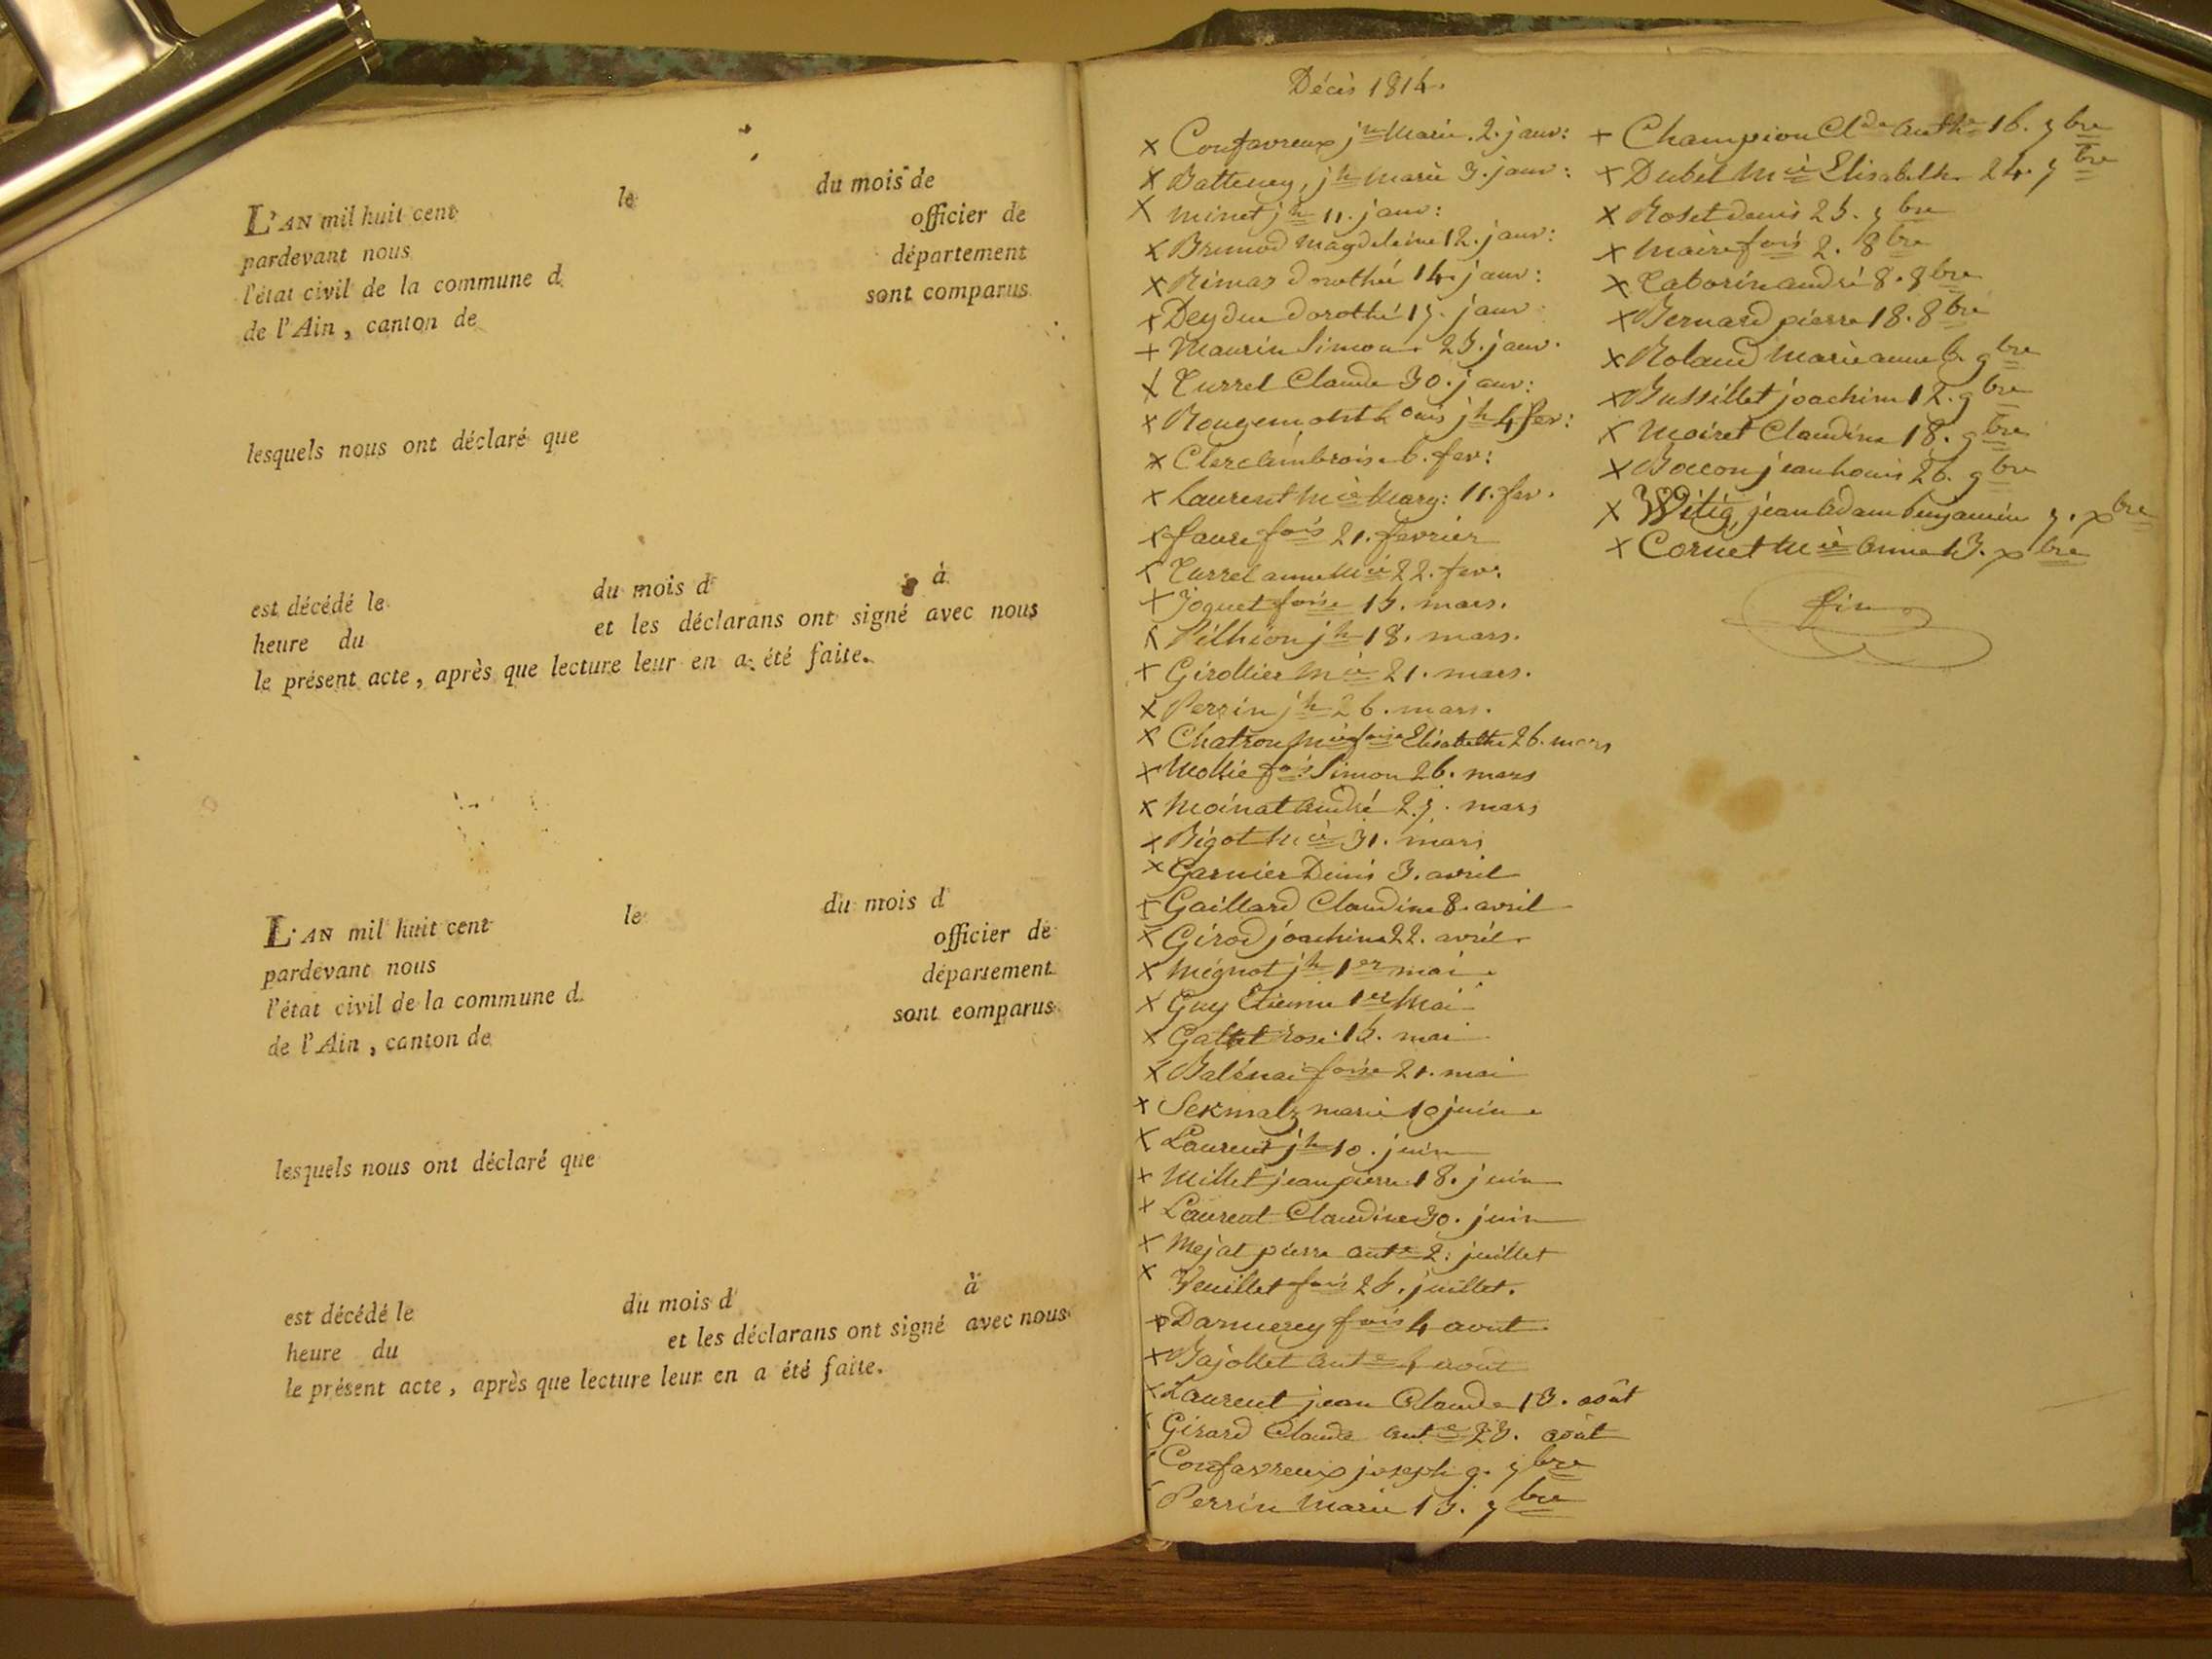 L'AN mil huit cent le du mois de
pardevant nous officier de
l'état civil de la commune d département
de l'Ain, canton de sont comparus
lesquels nous ont déclaré que
est décédé le du mois d à
heure du et les déclarans ont signé avec nous
le présent acte, après que lecture leur en a été faite.
L'AN mil huit cent le du mois d
pardevant nous officier de
l'état civil de la commune d département
de l'Ain, canton de sont comparus
lesquels nous ont déclaré que
est décédé le du mois d à
heure du et les déclarans ont signé avec nous
le présent acte, après que lecture leur en a été faite.
Décès 1814.
x Confavreux jh Marie. 2. janv:
x Batteney, jh marie 3. janv:
x minet jh 11. janv:
x Brunod Magdeleine 12. janv:
x Rimas dorothé 14. janv:
x Deydue dorothé 15. janv
+ Maurin Simon 23. janv.
x Turrel Claude 30. janv:
x Rougemont Louis jh 4 fev:
x Clerc Ambroise 6. fev:
x Laurent Mie Marg: 11. fev.
x faure fois 21. fevrier
x Turrel anne Mie 22. fev.
x Joguet foise 15. mars.
x jh 18. mars.
x Girollier Mie 21. mars.
x Perrin jh 26. mars.
x Chatron Mie foise Elisabethe 26. mars
x Mollie fois Simon 26. mars
x Moinat André 27. mars
x Bigot Mie 31. mars
x Garnier Denis 3. avril
x Gaillard Claudine 8. avril
x Girod joachim 22. avril
x Mignot jh 1er mai
x Guy Etienne 1er Mai
x rose 15. mai
x foise 21. mai
x Sekmalz marie 10 juin
x Laurent jh 10. juin
x Millet jean pierre 18. juin
x Laurent Claudine 30. juin
x Mejat pierre ante 2. juillet
x Veuillet fois 25. juillet.
x Darmerey fois 4 aout
x Bajollet Ante 4 aout
x Laurent jean Claude 13. août
Girard Claude ante 23. août
Confavreux joseph 9. 7bre
Perrin Marie 15. 7bre
+ Champion Clde Anthe 16. 7bre
x Dubel Mie Elisabethe 24. 7bre
x Roset denis 25. 7bre
x Maire fois 2. 8bre
x Taborin andré 8. 8bre
x Bernard pierre 18. 8bre
x Roland Marie anne 6. 9bre
x Bussillet joachim 12. 9bre
x Moiret Claudine 18. 9bre
x Boccon jean Louis 26. 9bre
x Witig, jean Adam benjamin 7. xbre
x Cornet Mie Anne 13. xbre
fin